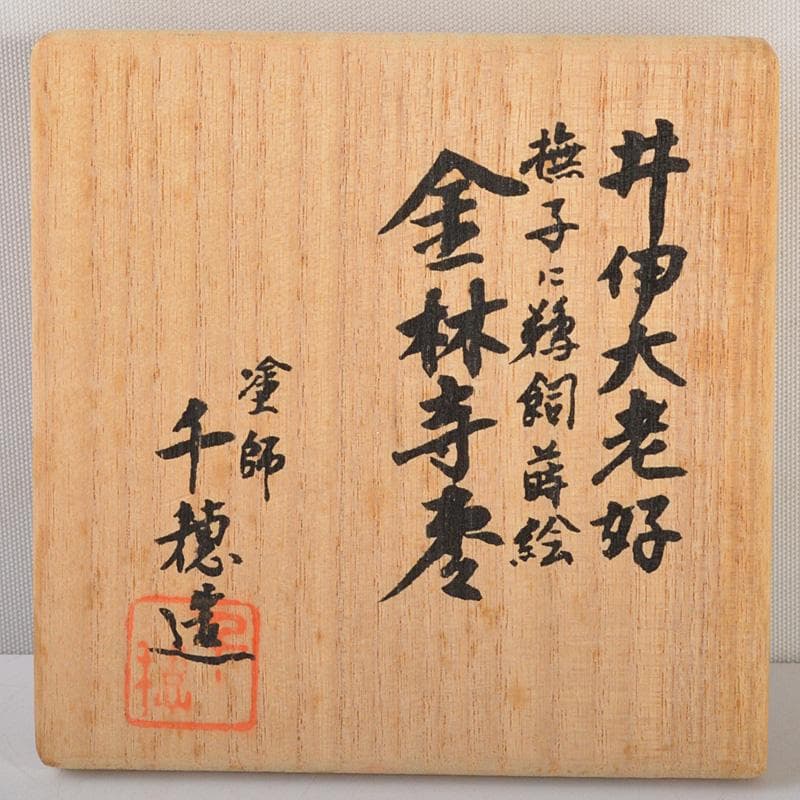 井伊大老好
撫子に鵜飼蒔絵
金林寺棗
塗師
千穂造